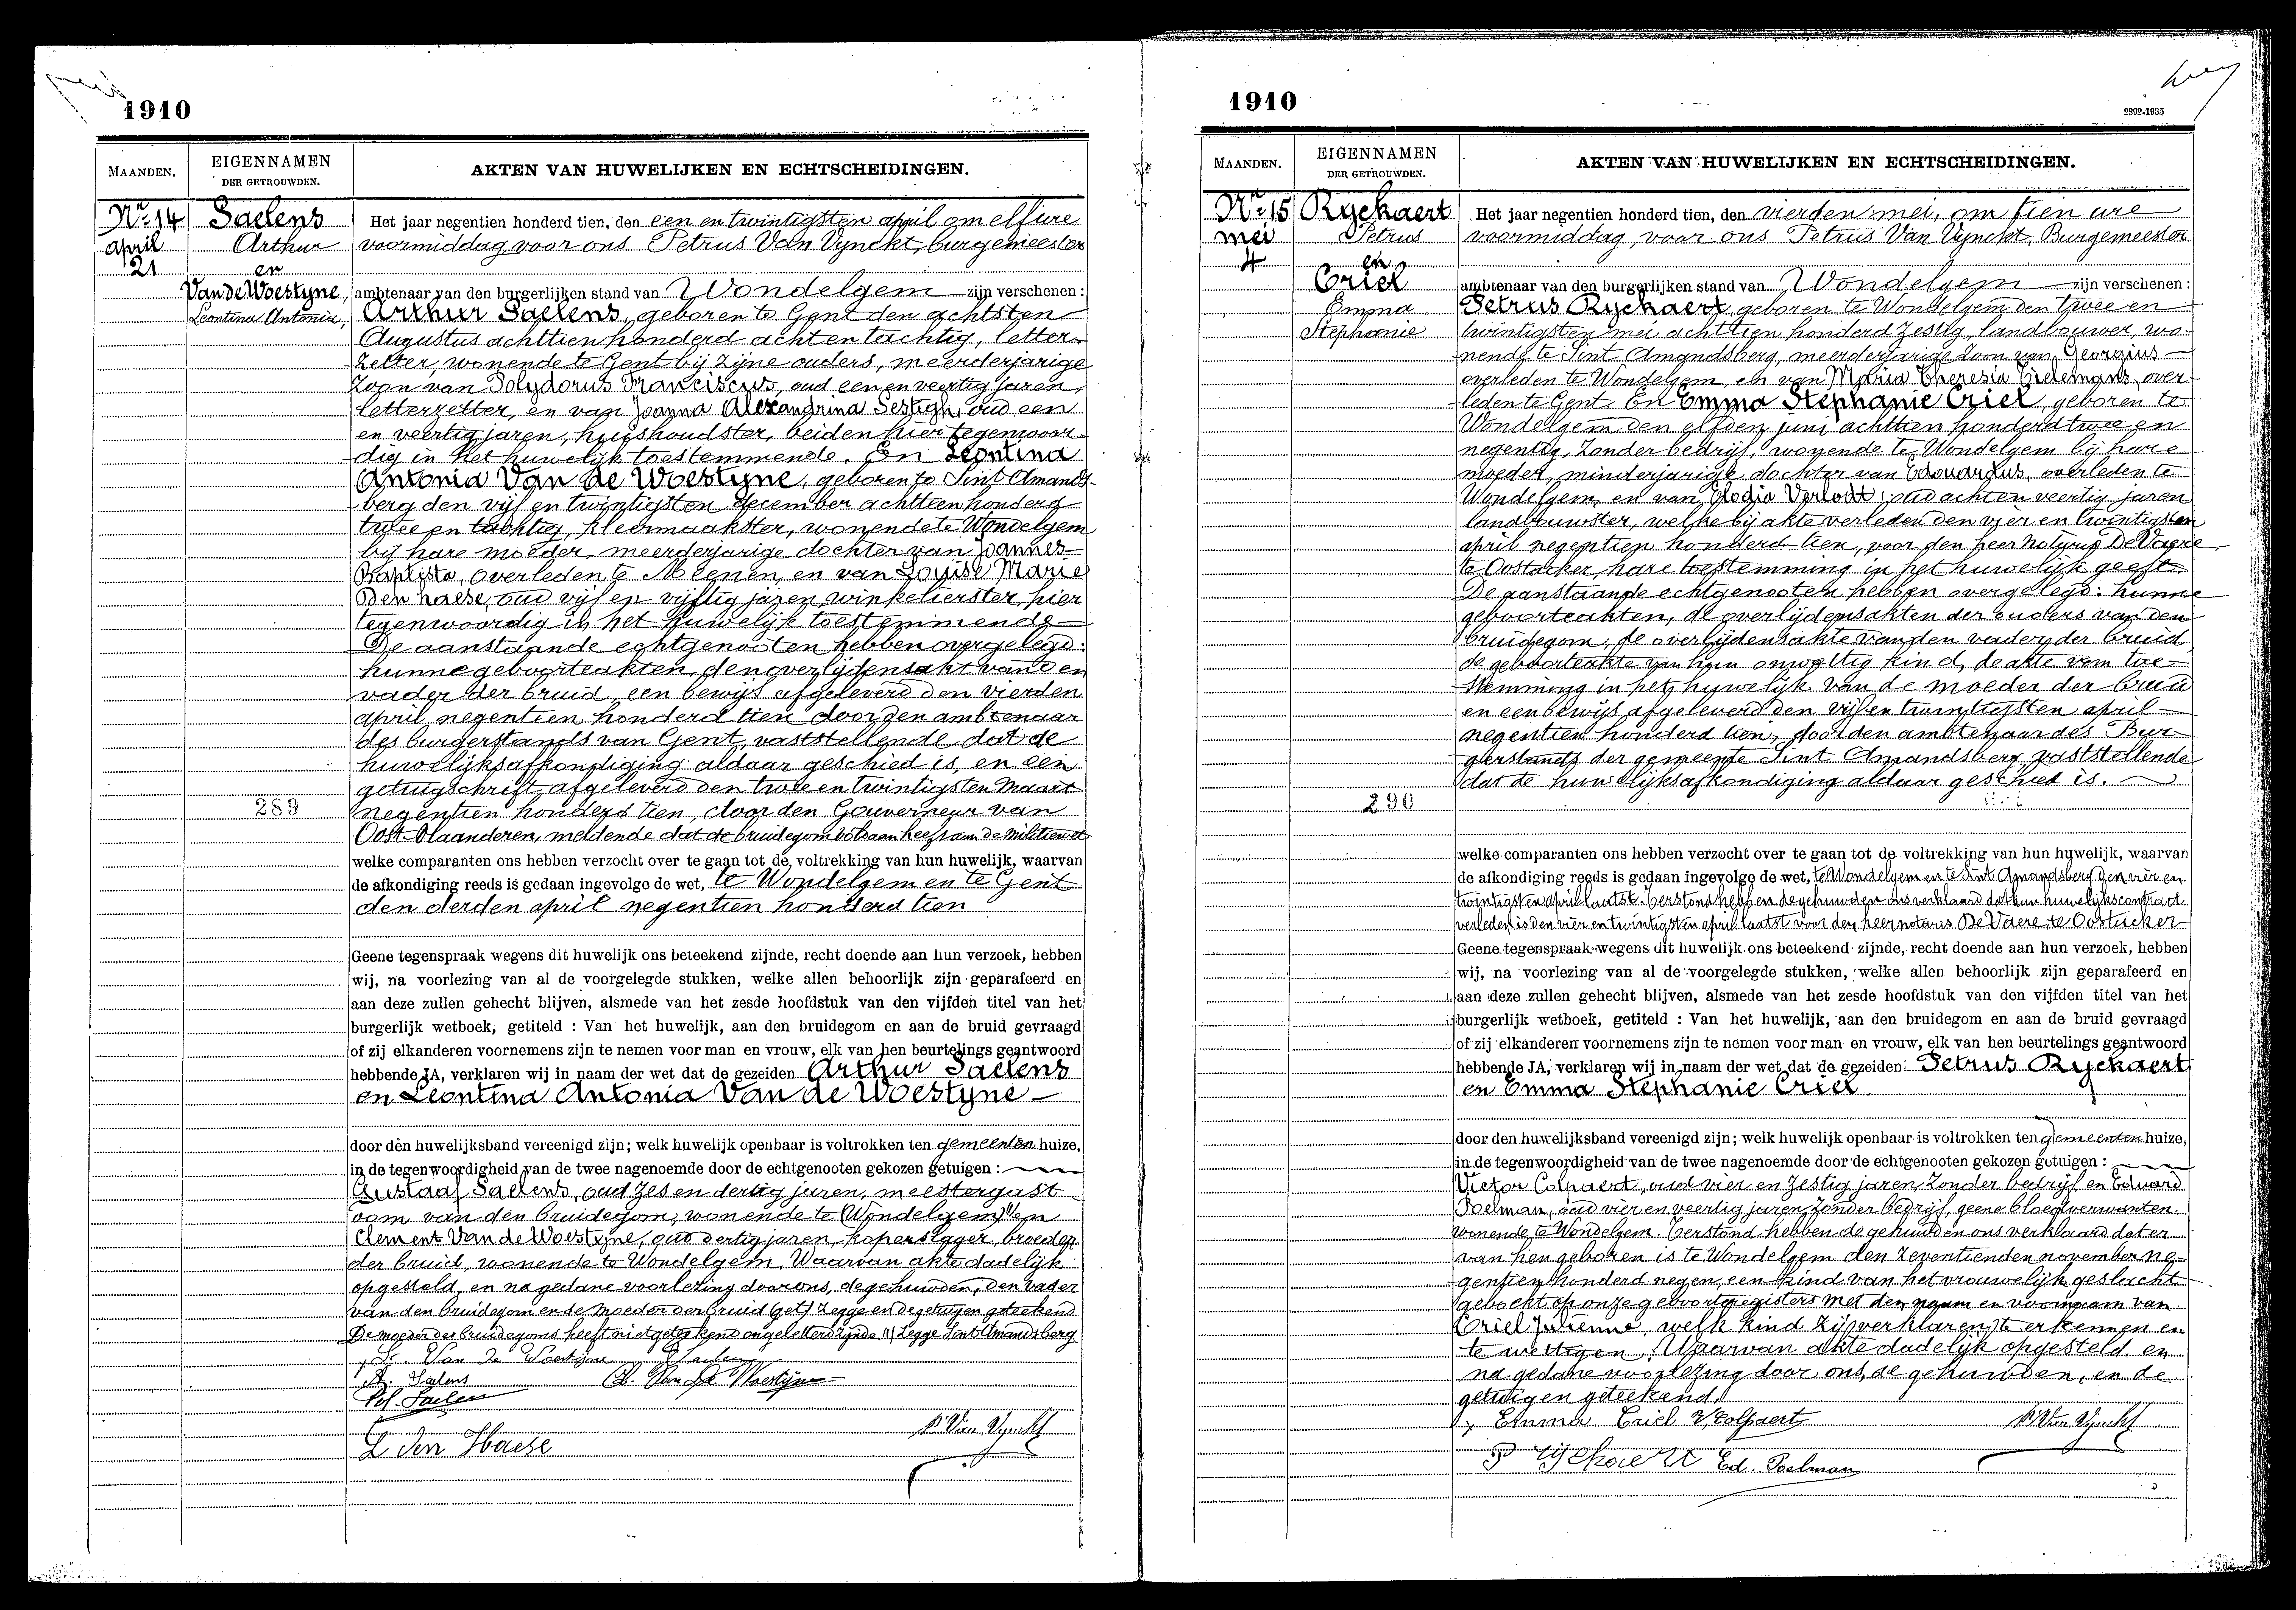 1910
MAANDEN.
EIGENNAMEN
DER GETROUWDEN.
AKTEN VAN HUWELIJKEN EN ECHTSCHEIDINGEN.
Nr. 14
april
21
Saelens
Arthur
en
Van de Woestyne,
Leontina Antonia,
Het jaar negentien honderd tien, den een en twintigsten april om elf ure
voormiddag voor ons Petrus Van Vynckt, burgemeester
ambtenaar van den burgerlijken stand van Wondelgem zijn verschenen :
Arthur Saelens, geboren te Gent den achtsten
Augustus achttien honderd acht en tachtig, letter-
zetter, wonende te Gent bij zijne ouders, meerderjarige
zoon van Polydorus Franciscus, oud een en veertig jaren,
letterzetter, en van Joanna Alexandrina Sestigh, oud een
en veertig jaren, huishoudster, beiden hier tegenwoor-
dig in het huwelijk toestemmende. En Leontina
Antonia Van de Woestyne, geboren te Sint Amands-
berg den vijf en twintigsten december achttien honderd
twee en tachtig, kleermaakster, wonende te Wondelgem
bij hare moeder, meerderjarige dochter van Joannes
Baptista, overleden te Meenen, en van Louise Marie
Den haese, oud vijf en vijftig jaren, winkelierster, hier
tegenwoordig in het huwelijk toestemmende
De aanstaande echtgenooten hebben overgelegd:
hunne geboorteakten, den overlijdensakt van den
vader der bruid, een bewijs afgeleverd den vierden
april negentien honderd tien door den ambtenaar
des burgerstands van Gent, vaststellende dat de
huwelijksafkondiging aldaar geschied is, en een
getuigschrift afgeleverd den twee en twintigsten Maart
289
negentien honderd tien, door den Gouverneur van
Oost-Vlaanderen, meldende dat de bruidegom voldaan heeft aan de militiewet
welke comparanten ons hebben verzocht over te gaan tot de voltrekking van hun huwelijk, waarvan
de afkondiging reeds is gedaan ingevolge de wet, te Wondelgem en te Gent
den derden april negentien honderd tien
Geene tegenspraak wegens dit huwelijk ons beteekend zijnde, recht doende aan hun verzoek, hebben
wij, na voorlezing van al de voorgelegde stukken, welke allen behoorlijk zijn geparafeerd en
aan deze zullen gehecht blijven, alsmede van het zesde hoofdstuk van den vijfden titel van het
burgerlijk wetboek, getiteld : Van het huwelijk, aan den bruidegom en aan de bruid gevraagd
of zij elkanderen voornemens zijn te nemen voor man en vrouw, elk van hen beurtelings geantwoord
hebbende JA, verklaren wij in naam der wet dat de gezeiden Arthur Saelens
en Leontina Antonia Van de Woestyne
door den huwelijksband vereenigd zijn; welk huwelijk openbaar is voltrokken ten gemeenten huize,
in de tegenwoordigheid van de twee nagenoemde door de echtgenooten gekozen getuigen :
Gustaaf Saelens, oud zes en dertig jaren, meestergast
oom van den bruidegom, wonende te (Wondelgem) en
Clement Van de Woestyne, oud dertig jaren, koperslager, broeder
der bruid, wonende te Wondelgem. Waarvan akte dadelijk
opgesteld, en na gedane voorlezing door ons, de gehuwden, den vader
van den bruidegom en de moeder der bruid (get) zegge en de getuigen geteekend
De moeder des bruidegoms heeft niet geteekend ongeletterd zijnde (1) zegge Sint Amandsberg
L. Van de Woestijne Saelens
A. Saelens Cl. Van de Woestijne
Pol. Saelens
P. Van Vynckt
L Den Haese
1910
2892-1935
MAANDEN.
EIGENNAMEN
DER GETROUWDEN.
AKTEN VAN HUWELIJKEN EN ECHTSCHEIDINGEN.
Nr. 15
mei
4
Ryckaert
Petrus
en
Criel
Emma
Stephanie
Het jaar negentien honderd tien, den vierden mei, om tien ure
voormiddag, voor ons Petrus Van Vynckt, Burgemeester
ambtenaar van den burgerlijken stand van Wondelgem zijn verschenen :
Petrus Ryckaert, geboren te Wondelgem den twee en
twintigsten mei achttien honderd zestig, landbouwer, wo-
nende te Sint Amandsberg, meerderjarige zoon van Georgius
overleden te Wondelgem, en van Maria Theresia Tielemans, over-
leden te Gent. En Emma Stephanie Criel, geboren te
Wondelgem den elfden juni achttien honderd twee en
negentig, zonder bedrijf, wonende te Wondelgem bij hare
moeder, minderjarige dochter van Edouardus, overleden te
Wondelgem, en van Elodia Verlodt, oud acht en veertig jaren
landbouwster, welke bij akte verleden den vier en twintigsten
april negentien honderd tien, voor den heer Notaris De Vaere
te Oostacker, hare toestemming in het huwelijk geeft.
De aanstaande echtgenooten hebben overgelegd: hunne
geboorteakten, de overlijdensakten der ouders van den
bruidegom, de overlijdensakte van den vader der bruid,
de geboorteakte van hun onwettig kind, de akte van toe-
stemming in het huwelijk van de moeder der bruid
en een bewijs afgeleverd den vijf en twintigsten april
negentien honderd tien, door den ambtenaar des Bur-
gerstands der gemeente Sint Amandsberg vaststellende
dat de huwelijksafkondiging aldaar geschied is.
290
welke comparanten ons hebben verzocht over te gaan tot de voltrekking van hun huwelijk, waarvan
de afkondiging reeds is gedaan ingevolge de wet, te Wondelgem en te Sint Amandsberg den vier en
twintigsten april laatst. Terstond hebben de gehuwden ons verklaard dat hun huwelijkscontract
verleden is den vier en twintigsten april laatst voor den heer notaris De Vaere te Oostacker
Geene tegenspraak wegens dit huwelijk ons beteekend zijnde, recht doende aan hun verzoek, hebben
wij, na voorlezing van al de voorgelegde stukken, welke allen behoorlijk zijn geparafeerd en
aan deze zullen gehecht blijven, alsmede van het zesde hoofdstuk van den vijfden titel van het
burgerlijk wetboek, getiteld : Van het huwelijk, aan den bruidegom en aan de bruid gevraagd
of zij elkanderen voornemens zijn te nemen voor man en vrouw, elk van hen beurtelings geantwoord
hebbende JA, verklaren wij in naam der wet dat de gezeiden Petrus Ryckaert
en Emma Stephanie Criel
door den huwelijksband vereenigd zijn; welk huwelijk openbaar is voltrokken ten gemeenten huize,
in de tegenwoordigheid van de twee nagenoemde door de echtgenooten gekozen getuigen :
Victor Colpaert, oud vier en zestig jaren, zonder bedrijf en Eduard
Poelman, oud vier en veertig jaren, zonder bedrijf, geene bloedverwanten
wonende te Wondelgem. Terstond hebben de gehuwden ons verklaard dat er
van hen geboren is te Wondelgem den zeventienden november ne-
gentien honderd negen, een kind van het vrouwelijk geslacht
geboekt op onze geboortregisters met den naam en voornaam van
Criel Julienne, welk kind zij verklaren te erkennen en
te wettigen. Waarvan akte dadelijk opgesteld en
na gedane voorlezing door ons, de gehuwden, en de
getuigen geteekend.
Emma Criel V. Colpaert P. Van Vynckt
P Ryckaert Ed. Poelman